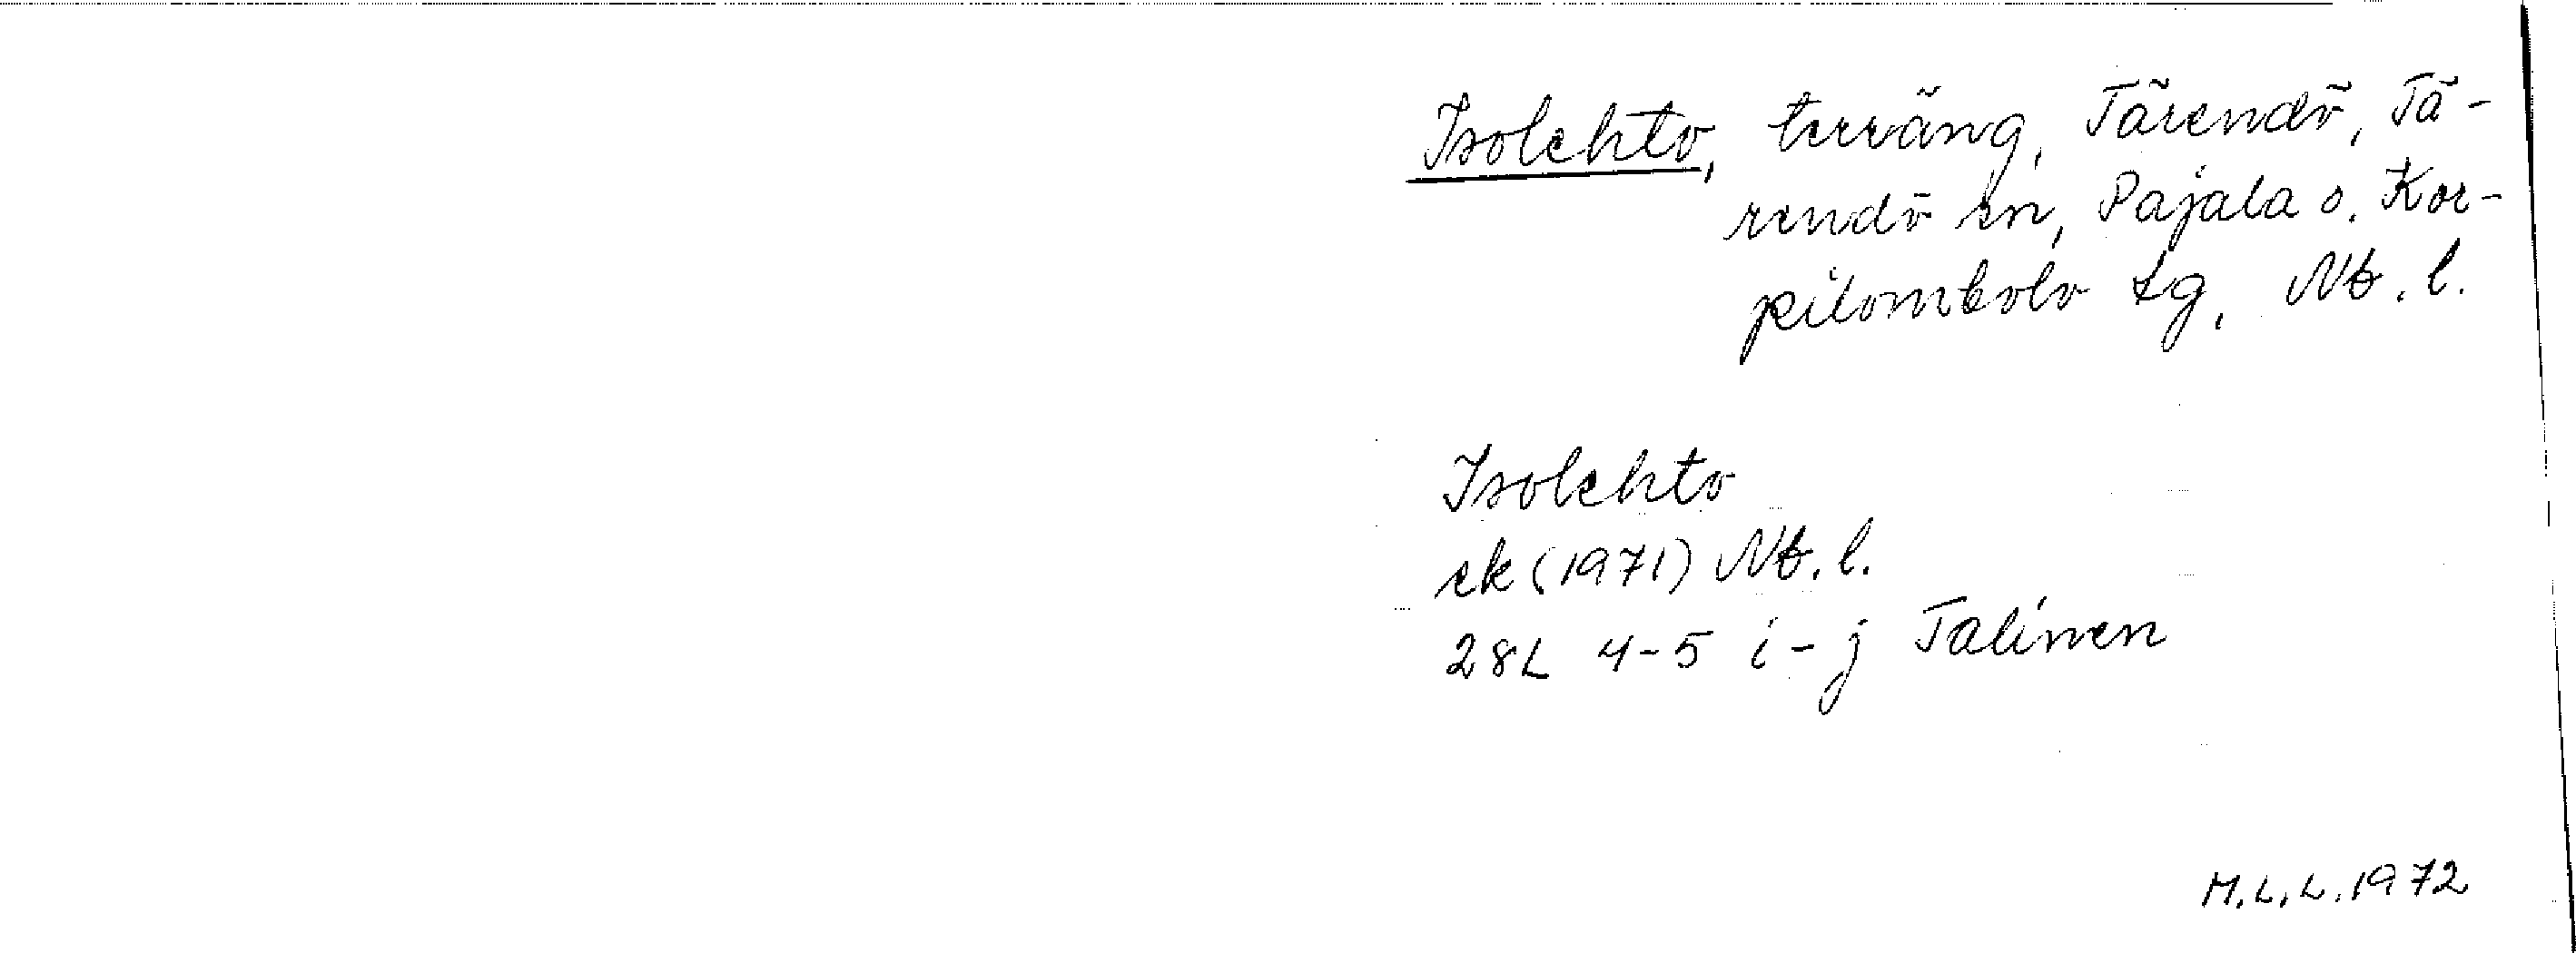 Isolehto, terräng, Tärendö, Tä-
rendö sn, Pajala o. Kor-
pilombolo tg, Nb. l.
Isolehto
ek (1971) Nb. l.
28L 4-5 i-j Talinen
M.L.L. 1972